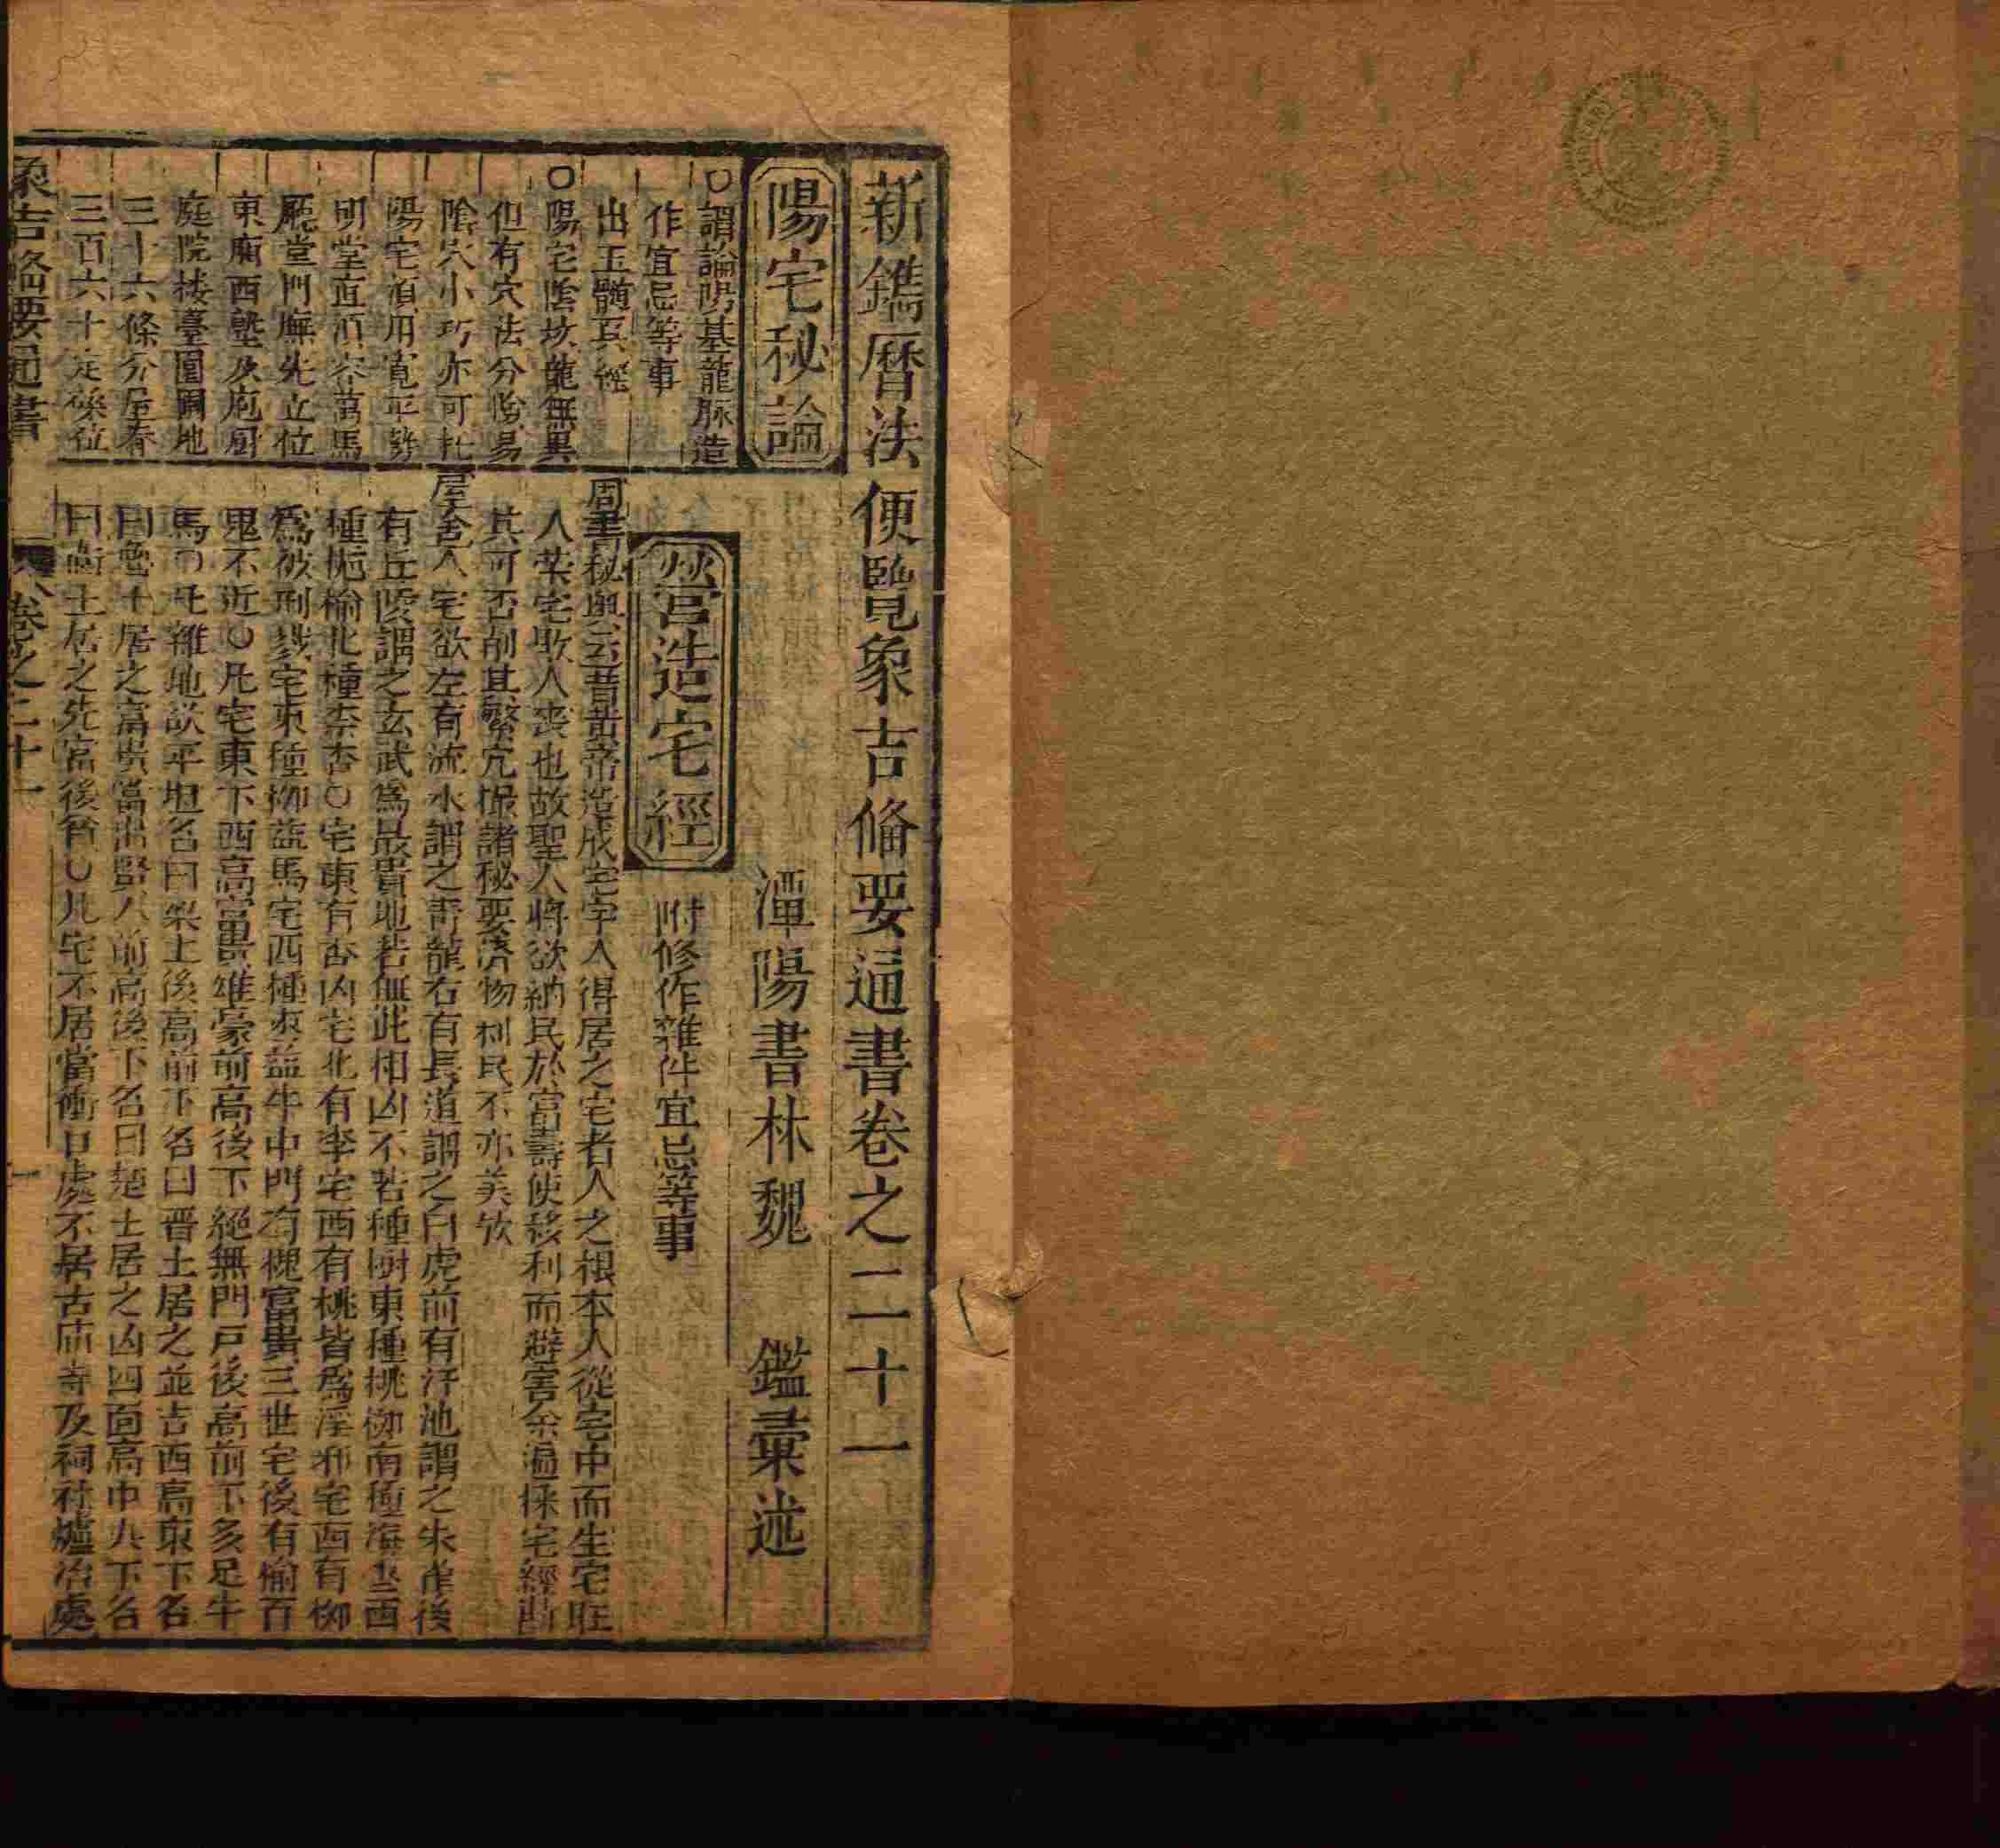 新鐫曆法便覽象吉俻要通書卷之二十一
潭陽書林魏 鑑彚述
陽宅秘論
○謂論陽基龍脉造
作宜忌等事
出玉髓真經
○陽宅陰坟龍無異
但有穴法分陰易
陰穴小巧亦可扦
陽宅須用寬平勢
明堂直須容萬馬
廳堂門廡先立位
東廂西塾及庖厨
庭院楼臺園圃地
三十六條分屋春
三百六十定磉位
營造宅經
附修作雜件宜忌等事
周書秘奥云昔黄帝造成宅宇人得居之宅者人之根本人從宅中而生宅旺
人荣宅敗人丧也故聖人將欲納民於富壽使移利而避害余遍採宅經斷
其可否削其繁冗撮諸秘要濟物利民不亦美欤
屋舍人宅欲左有流水謂之青龍右有長道謂之白虎前有汙池謂之朱雀後
有丘陵謂之玄武爲最貴地若無此相凶不若種樹東種桃栁南種海 西
種栀榆北種柰杏○宅東有杏凶宅北有李宅西有桃皆爲淫邪宅西有栁
爲被刑戮宅東種栁益馬宅西種枣益牛中門有槐富貴三世宅後有榆百
鬼不近○凡宅東下西高富貴雄豪前高後下絕無門戸後高前下多足牛
馬○凡雜地欲平坦名曰梁土後高前下名曰晋土居之並吉西高東下名
曰魯土居之富貴當出賢人前高後下名曰楚士居之凶四面高中央下名
曰衛土居之先富後貧○凡宅不居當衝口處不居古庙寺及祠社爐冶處
象吉俻要通書 卷之二十一 一